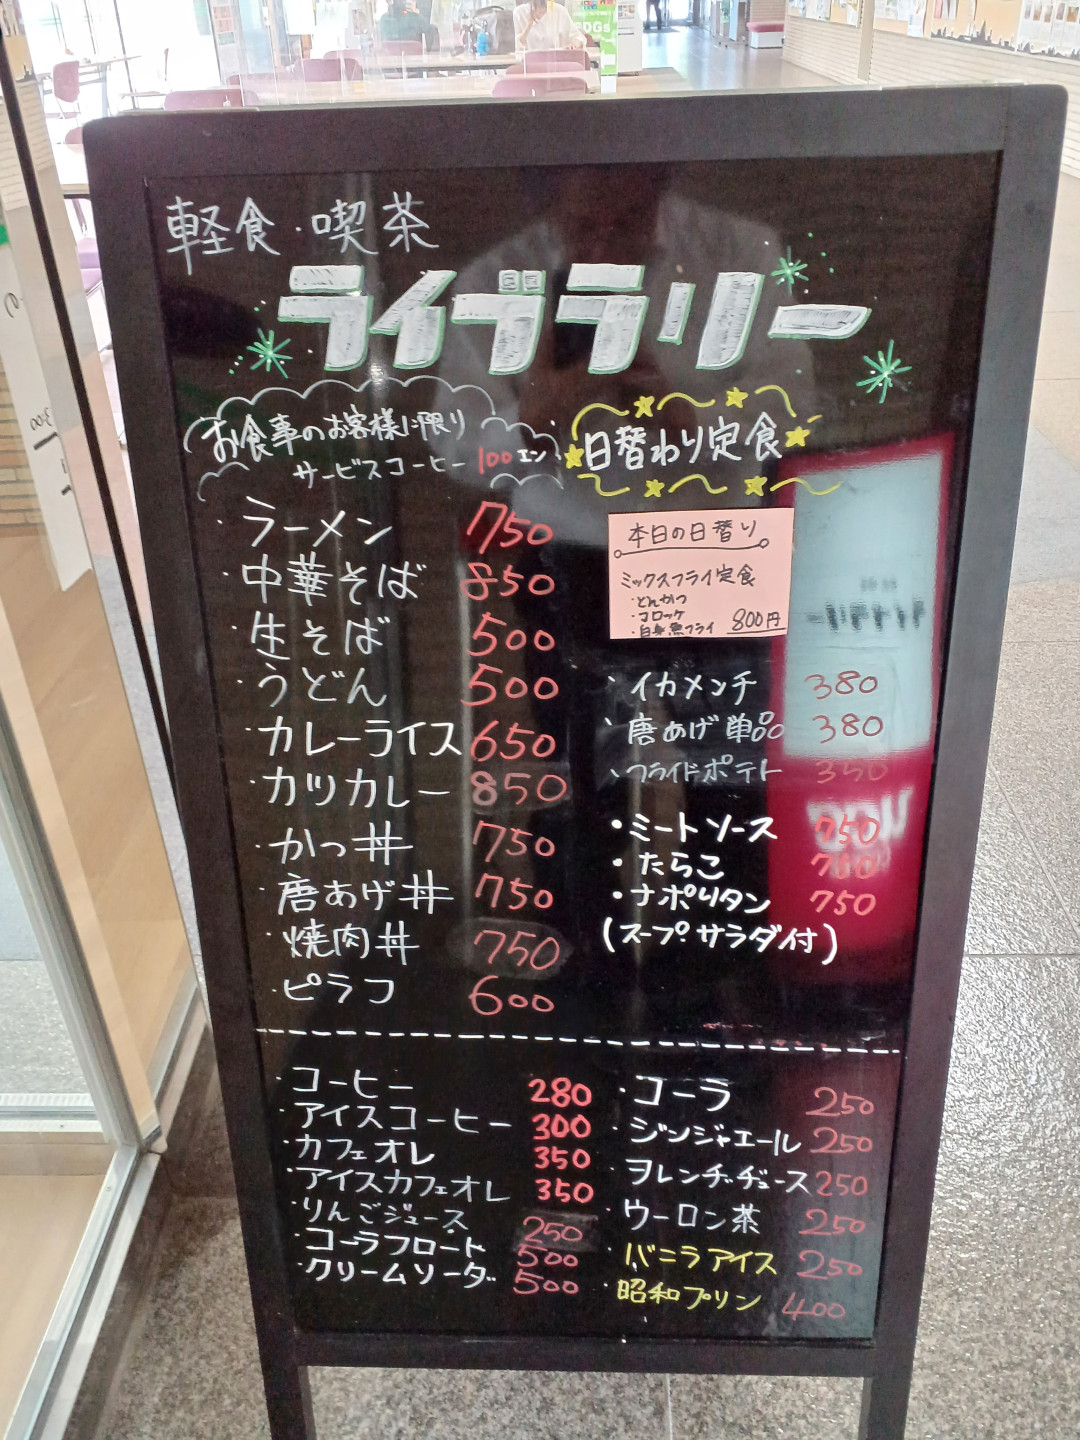 軽食・喫茶
ライブラリー
お食事のお客様に限り
サービスコーヒー 100エン
・ラーメン 750
・中華そば 850
・生そば 500
・うどん 500
・カレーライス 650
・カツカレー 850
・かつ丼 750
・唐あげ丼 750
・焼肉丼 750
・ピラフ 600
日替わり定食
本日の日替り
ミックスフライ定食
・とんかつ
・コロッケ
・白身魚フライ 800円
・イカメンチ 380
・唐あげ単品 380
・フライドポテト 350
・ミートソース 750
・たらこ 700
・ナポリタン 750
(スープ・サラダ付)
・コーヒー 280
・アイスコーヒー 300
・カフェオレ 350
・アイスカフェオレ 350
・りんごジュース 250
・コーラフロート 500
・クリームソーダ 500
・コーラ 250
・ジンジャエール 250
・ヲレンヂ・ヂュース 250
・ウーロン茶 250
・バニラアイス 250
・昭和プリン 400